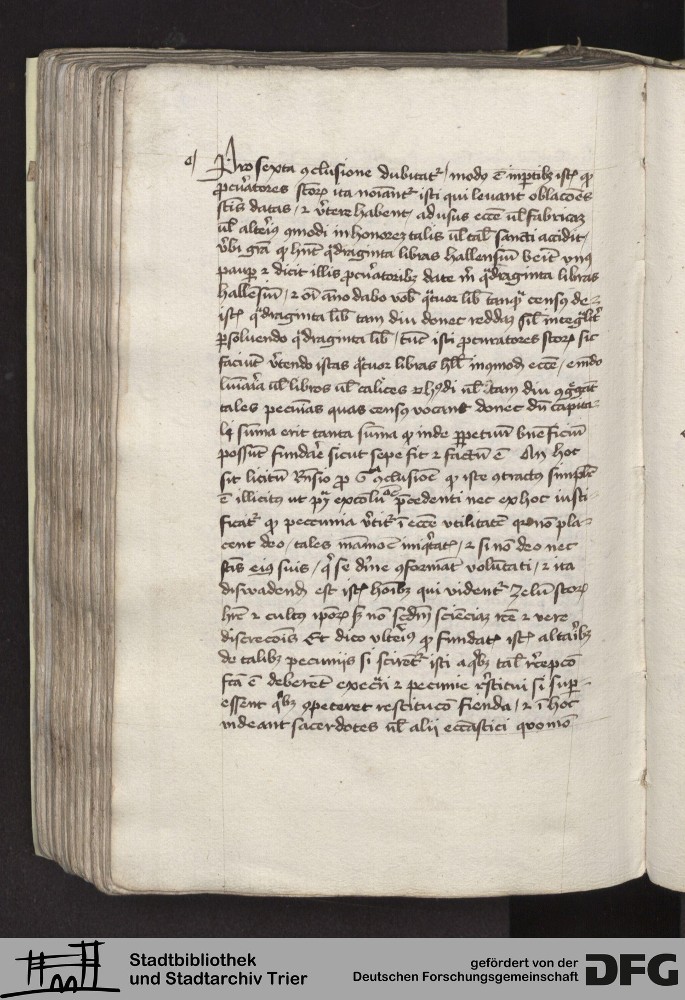 Pro sexta ꝯclusione dubitat᷑ / modꝰ ē in ꝑtibꝫ istꝭ ꝙ
ꝓcuratores sctoꝝ ita noīant᷑ isti qui levant oblacoēs
sctīs datas / ⁊ ꝟtere habent / ad usus eccē vl̄ fabricaꝫ
vl̄ altiꝰ ꝯmodi in honoreꝫ talis vl̄ tal̄ sancti accidit /
v̉bi grā ꝙ hn̄t q̄draginta libras hallensiū veīt vnꝰ
paup̱ ⁊ dicit illis ꝓcuratoribꝫ date m̄ q̄draginta libras
hallēsiū / ⁊ oī anno dabo vob̄ q̄tuor lib̄ tanqᷓ census de
istꝭ q̄draginta lib̄ tam diu donec reddaꝫ sil̄ integᷓlit̄
ꝑsoluendo q̄draginta lib̄ / tūc isti ꝓcuratores sctoꝝ sic
faciūt ꝟtendo istas q̄tuor libras hll̄ in ꝯmodū eccē / emēdo
luīaria vl̄ libros vl̄ calices ⁊ hꝰdi vl̄ tam diu ꝯgᷓgāt
tales pecuīas quas censꝰ vocant donec cū capita-
li sūma erit tanta sūma ꝙ inde ꝑpetuū bn̄ficiū
possūt fundare sicut sepe fit ⁊ factū ē An hoc
sit licitū Rn̄sio ꝓ 6ᵃ ꝯclusioē ꝙ iste ꝯtractꝰ simpl̄r
ē illicitꝰ ut pꝫ ex ꝯclū̄e p̄cedenti nec ex hoc iusti-
ficat᷑ ꝙ pecunia ꝟtit᷑ ī eccē vtilitatē qꝛ nō pla-
cent deo / tales mamōe iniq̄tatꝭ / ⁊ si nō deo nec
sctīs eiꝰ suis / qꝛ se dīne ꝯformāt volūtati / ⁊ ita
diswadendū est istꝭ hoībꝫ qui vident᷑ zelū sctoꝝ
hr̄e ⁊ cultꝰ ip̄oꝝ sꝫ nō scd̄m scienciaꝫ rcē ⁊ vere
discrecoīs Et dico vlteriꝰ ꝙ fundatꝭ istꝭ altaribꝫ
de talibꝫ pecuniis si sciret᷑ isti a q̄bꝫ tal̄ rᷣcepcō
fcā ē deberēt execri ⁊ pecunie rᷣstitui si sup̱-
essent q̄bꝫ ꝯpeteret restitucō fienda / ⁊ ī hoc
videant sacerdotes vl̄ alii eccāstici quomō
Stadtbibliothek
und Stadtarchiv Trier
gefördert von der
Deutschen Forschungsgemeinschaft
DFG